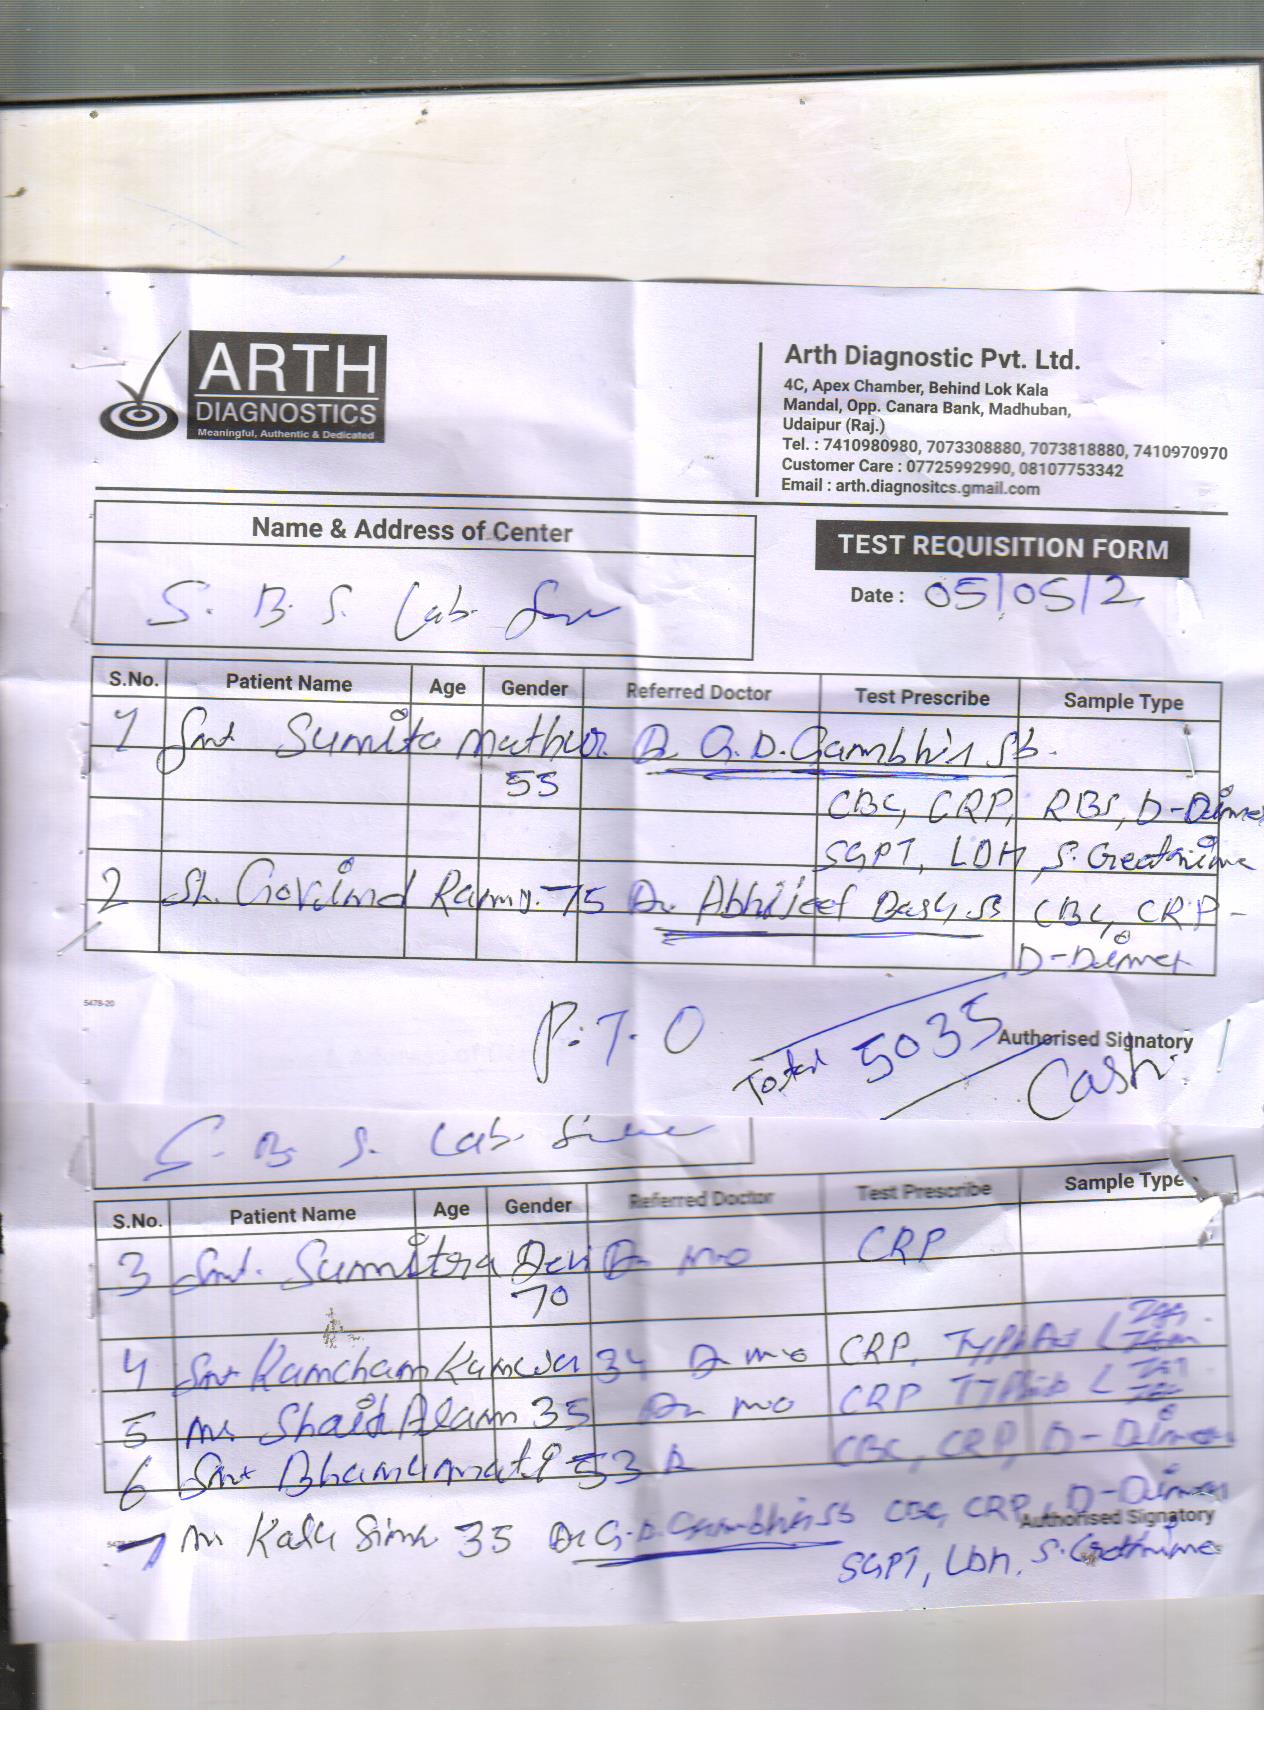 ARTH
DIAGNOSTICS
Meaningful, Authentic & Dedicated
Arth Diagnostic Pvt. Ltd.
4C, Apex Chamber, Behind Lok Kala
Mandal, Opp. Canara Bank, Madhuban,
Udaipur (Raj.)
Tel. : 7410980980, 7073308880, 7073818880, 7410970970
Customer Care : 07725992990, 08107753342
Email : arth.diagnositcs.gmail.com
Name & Address of Center
TEST REQUISITION FORM
S. B. S. Lab.
Date : 05/05/2
S.No. Patient Name Age Gender Referred Doctor Test Prescribe Sample Type
1 Smt Sumita Mathur Dr G.D. Gambhir Sb.
55
CBC, CRP, RBS, D-Dimer
SGPT, LDH, S. Creatinine
2 Sh. Govind Ram 75 Dr. Abhijeet Das Sb CBC, CRP -
D-Dimer
5478-20
P.T.O
Total 5035
Authorised Signatory
Cash
S. B. S. Lab.
S.No. Patient Name Age Gender Referred Doctor Test Prescribe Sample Type
3 Smt. Sumitra Devi Dr mo CRP
70
4 Smt Kanwar 34 Dr mo CRP,
5 Mr Alam 35 Dr mo CRP
6 Smt 53 CBC, CRP, D-Dimer
7 Mr Kalu 35 Dr G.D. Gambhir Sb CBC, CRP, D-Dimer
Authorised Signatory
SGPT, LDH, S. Creatinine